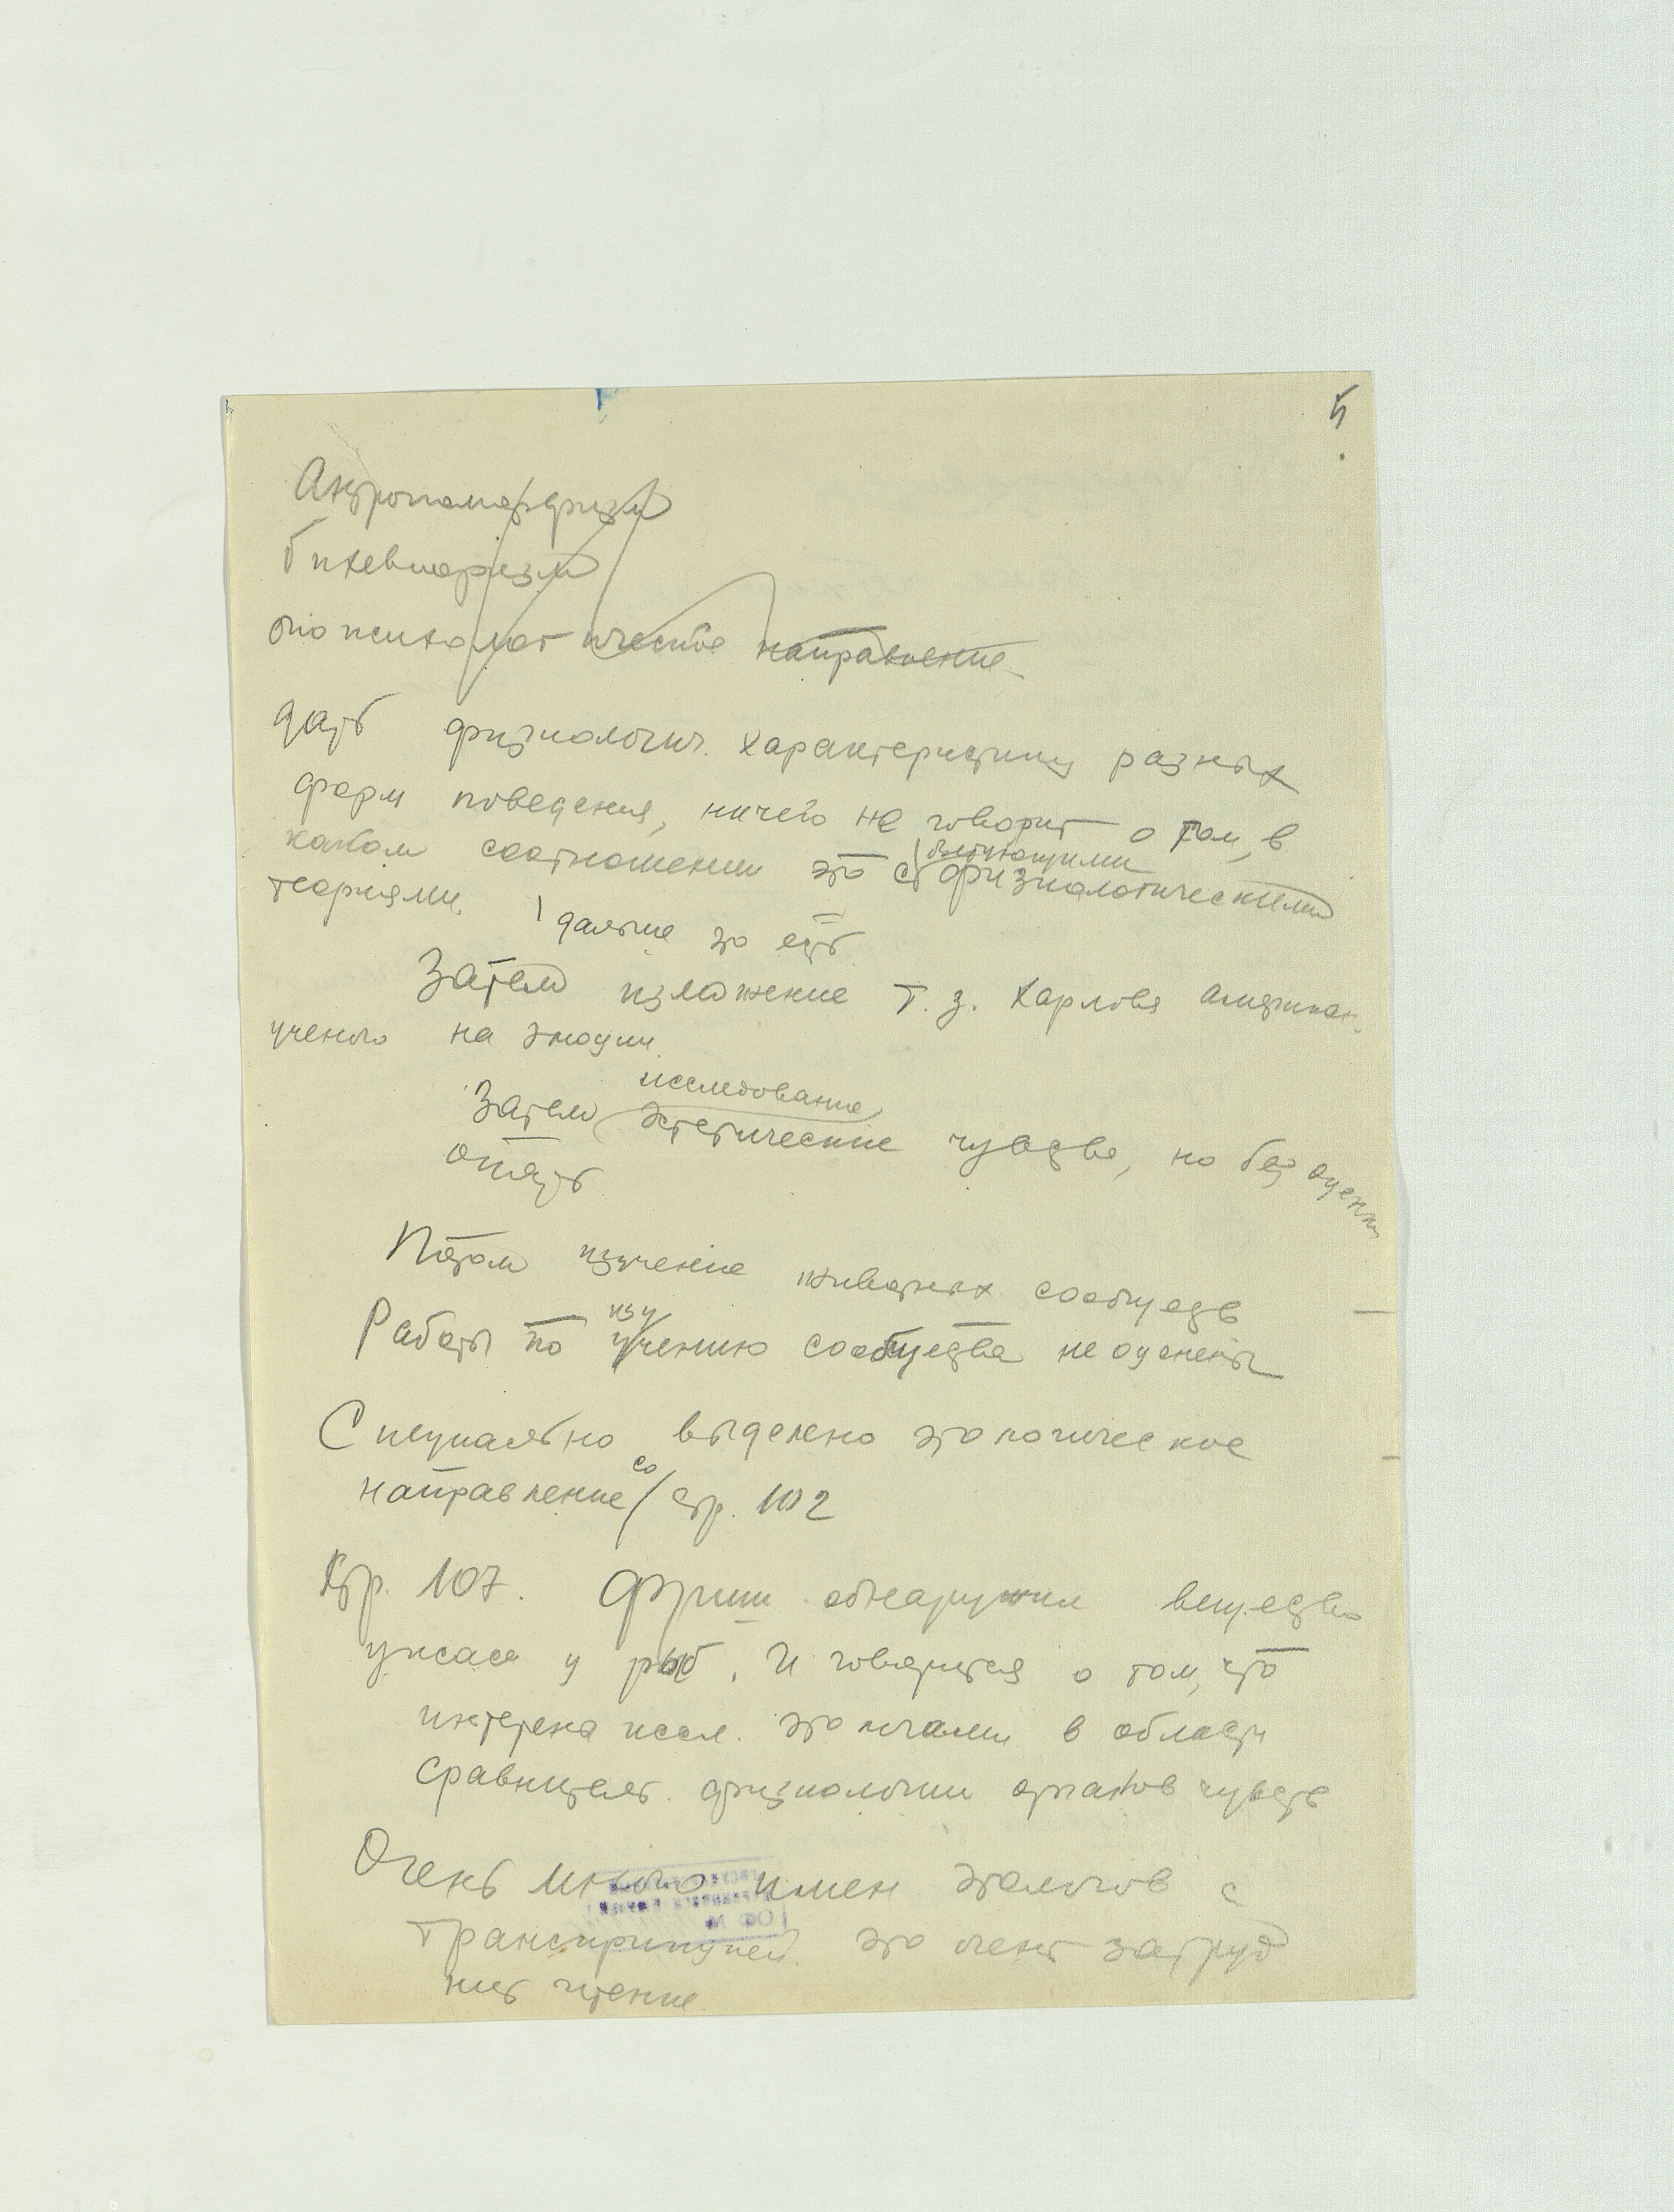 5
Антропоморфизм
бихевиоризм
биопсихологическое направление
дать физиологич. характеристику разных
форм поведения, ничего не говорит о том, в
каком соотношении это с физиологическими
теориями.
дальше это есть
Затем изложение т. з. Харлова американ.
ученого на эмоции.
исследование
Затем эстетические чувства, но без оценки
опять
Потом изучение животных сообществ
изу
Работы по учению сообщества не оценены
Специально выделено этологическое
со
направление стр. 102
Стр. 107. Фриш обнаружил вещество
ужаса у рыб. И говорится о том, что
интерена иссл. этологами в области
сравнительн. физиологии органов чувств
Очень много имен этологов с
транскрипцией это очень затруд
нит чтение.